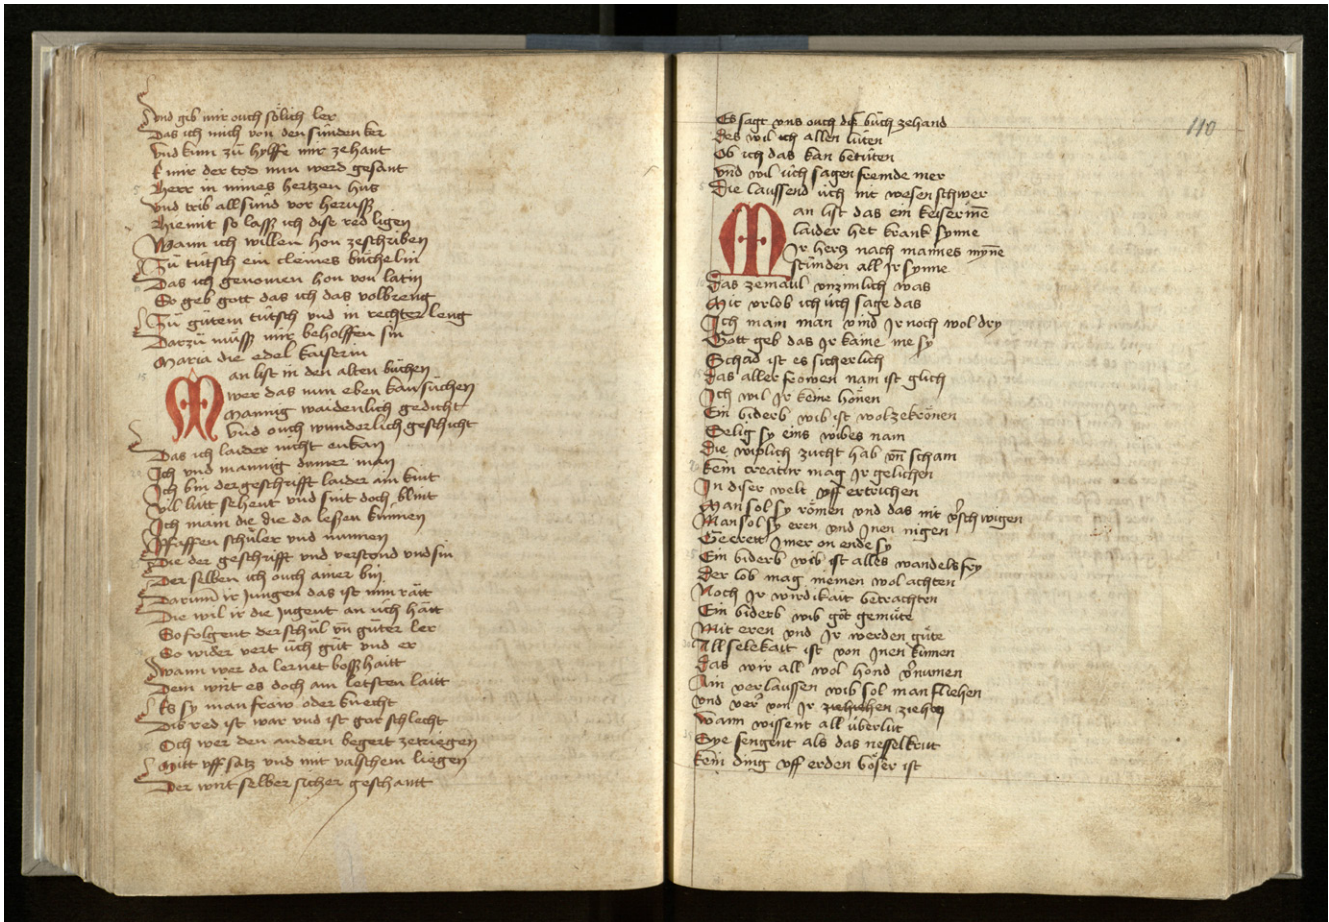 Vnd gib mir ouch soͤlich ler
Das ich mich von den sünden ker
Vnd kum zuͦ hylffe mir zehant
E mir der tod min werd gesant
Herr in mines hertzen hus
Vnd trib all sünd vor heruß
Hiemit so lass ich dise red ligen
Wann ich willen hon ze schriben
Zuͦ tütsch ein cleines büchelin
Das ich genomen hon von latin
So geb gott das ich das volbreng
Zuͦ guͦtem tütsch vnd in rechter leng
Darzuͦ muͦß mir beholffen sin
Maria die edel kaiserin
Man list in den alten buͤchen
wer das nun eben kan suͦchen
Mannig waidenlich gedicht
Vnd ouch wunderlich geschicht
Das ich laider nicht enkan
Ich vnd mannig dumer man
Ich bin der geschrifft laider ain kint
Vil lütt sehent vnd sint doch blint
Ich main die die da leßen künnen
Pfaffen schuͦler vnd nunnen
Die der geschrifft vnd verstond vnd sin
Der selben ich ouch ainer bin
Darum̄ ir Jungen das ist min rătt
Die wil ir die Jugent an üch hătt
So folgent der schuͦl vn̄ guͦter ler
So wider vert üch guͦt vnd er
Wann wer da lernet boßhaitt
Dem wirt es doch am letsten laitt
Es sy man frow oder knecht
Dis red ist war vnd ist gar schlecht
Och wer den andern begert zetriegen
Mitt vff satz vnd mit valschem liegen
Der wirt selber sicher geschantt
110
Es sagt vns ouch dis buͦch zehand
Des wil ich allen lüten
Ob ich das kan betüten
Vnd wil üch sagen fremde mer
Die laussend üch nit wesen schwer
Man list das ein keiserin̄e
laider het krank synne
Ir hertz nach mannes myn̄e
stuͦnden all Ir synne
Das zemaul vnzimlich was
Mit vrlob ich üch sage das
Ich main man vind Ir noch wol dry
Gott geb das Ir kaine me sy
Schad ist es sicherlich
Das aller frowen nam ist glich
Ich wil Ir keine hoͤnen
Ein biderb wib ist wol zekroͤnen
Selig sy eins wibes nam
Die wiplich zucht hab vn̄ scham
Kein creatur mag Ir gelichen
In diser welt vff ertrichen
Man sol sy roͤmen vnd das nit v̄schwigen
Man sol sy eren vnd Inen nigen
Geerett Jmer on ende sy
Ein biderb wib ist alles wandels fry
Der lob mag niemen wol achten
Noch Ir wirdikait betrachten
Ein biderb wib guͦt gemuͤte
Mit eren vnd Ir werden guͤte
All selekait ist von Inen kumen
Das wir all wol hond v̄numen
Ain verlaussen wib sol man fliehen
Vnd ver von Ir ziehiehen ziehen
Wann wissent all überlut
Sye sengent als das nesselkrut
Kein ding vff erden boͤser ist